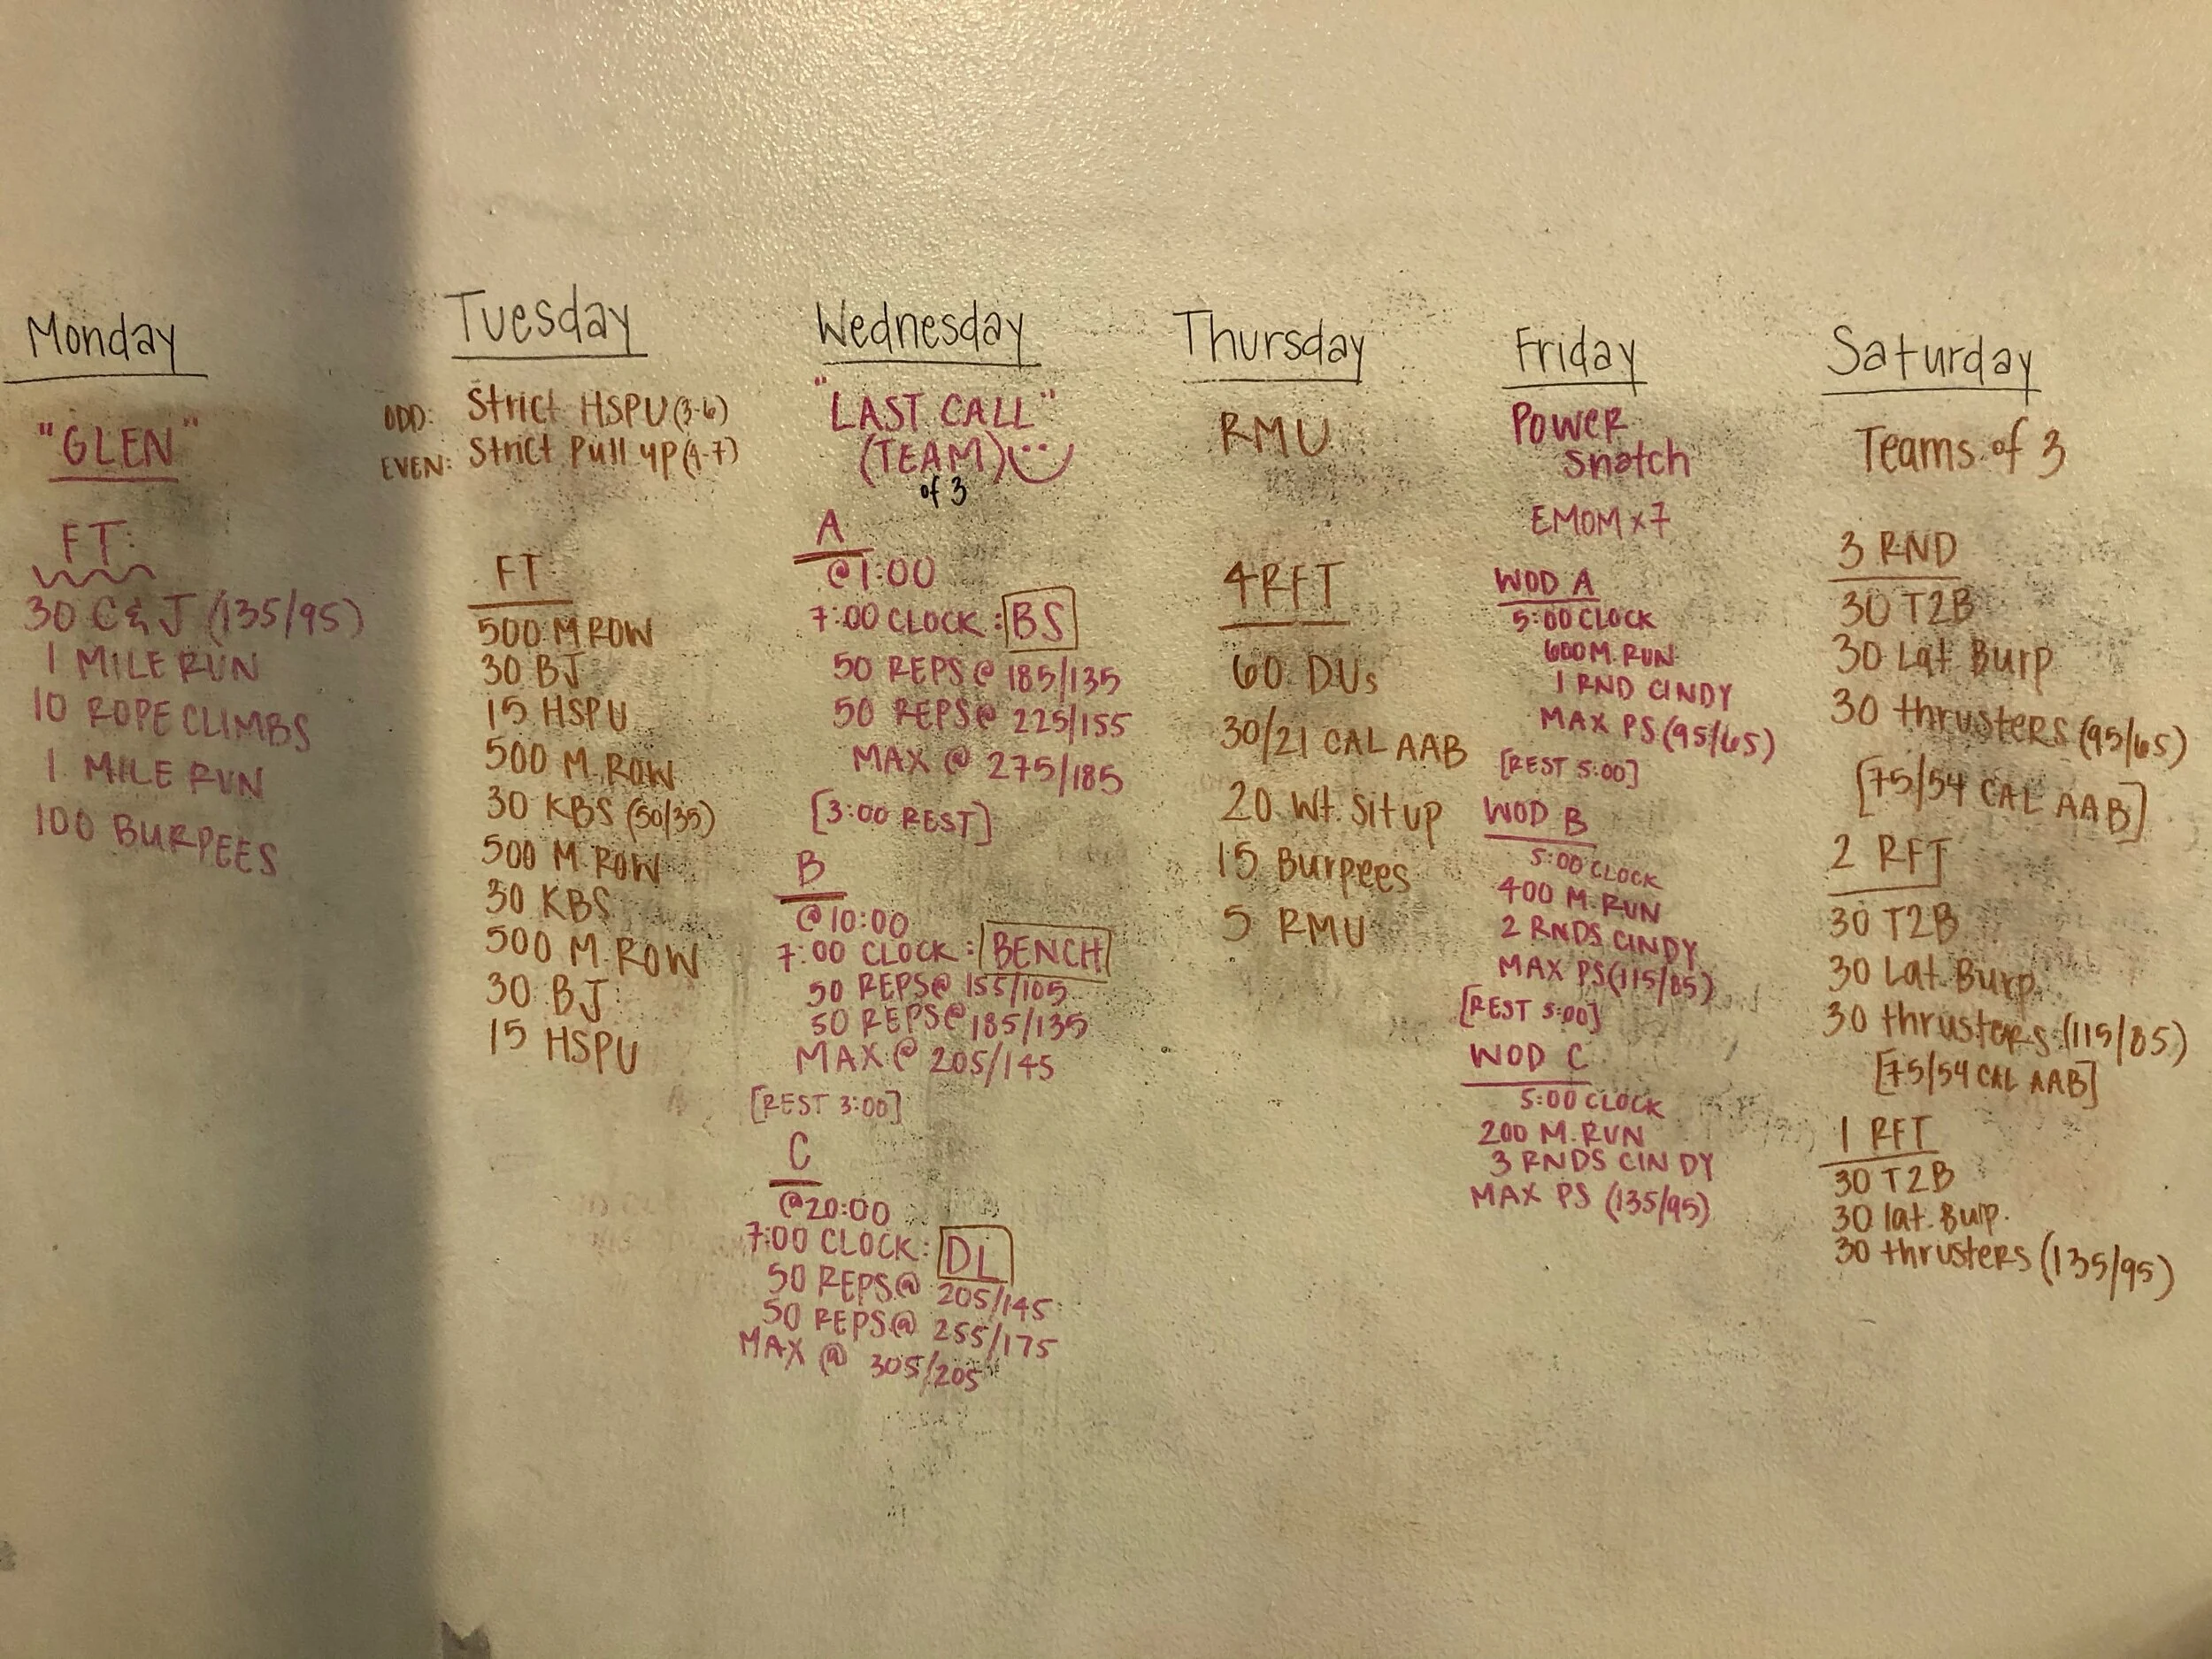 Monday
"GLEN"
FT:
30 C&J (135/95)
1 MILE RUN
10 ROPE CLIMBS
1 MILE RUN
100 BURPEES
Tuesday
ODD: Strict HSPU (3-6)
EVEN: Strict Pull up (4-7)
FT
500 M ROW
30 BJ
15 HSPU
500 M. ROW
30 KBS (50/35)
500 M. ROW
30 KBS
500 M. ROW
30 BJ
15 HSPU
Wednesday
"LAST CALL"
(TEAM)
of 3
A
@1:00
7:00 CLOCK: BS
50 REPS @ 185/135
50 REPS @ 225/155
MAX @ 275/185
[3:00 REST]
B
@10:00
7:00 CLOCK: BENCH
50 REPS@ 155/105
50 REPS@ 185/135
MAX @ 205/145
[REST 3:00]
C
@20:00
7:00 CLOCK: DL
50 REPS@ 205/145
50 REPS@ 255/175
MAX @ 305/205
Thursday
RMU
4 RFT
60 DUs
30/21 CAL AAB
20 Wt. Situp
15 Burpees
5 RMU
Friday
Power
Snatch
EMOM x 7
WOD A
5:00 CLOCK
600 M. RUN
1 RND CINDY
MAX PS (95/65)
[REST 5:00]
WOD B
5:00 CLOCK
400 M. RUN
2 RNDS CINDY
MAX PS (115/85)
[REST 5:00]
WOD C
5:00 CLOCK
200 M. RUN
3 RNDS CINDY
MAX PS (135/95)
Saturday
Teams of 3
3 RND
30 T2B
30 Lat Burp
30 thrusters (95/65)
[75/54 CAL AAB]
2 RFT
30 T2B
30 Lat. Burp.
30 thrusters (115/85)
[75/54 CAL AAB]
1 RFT
30 T2B
30 lat. Burp.
30 thrusters (135/95)